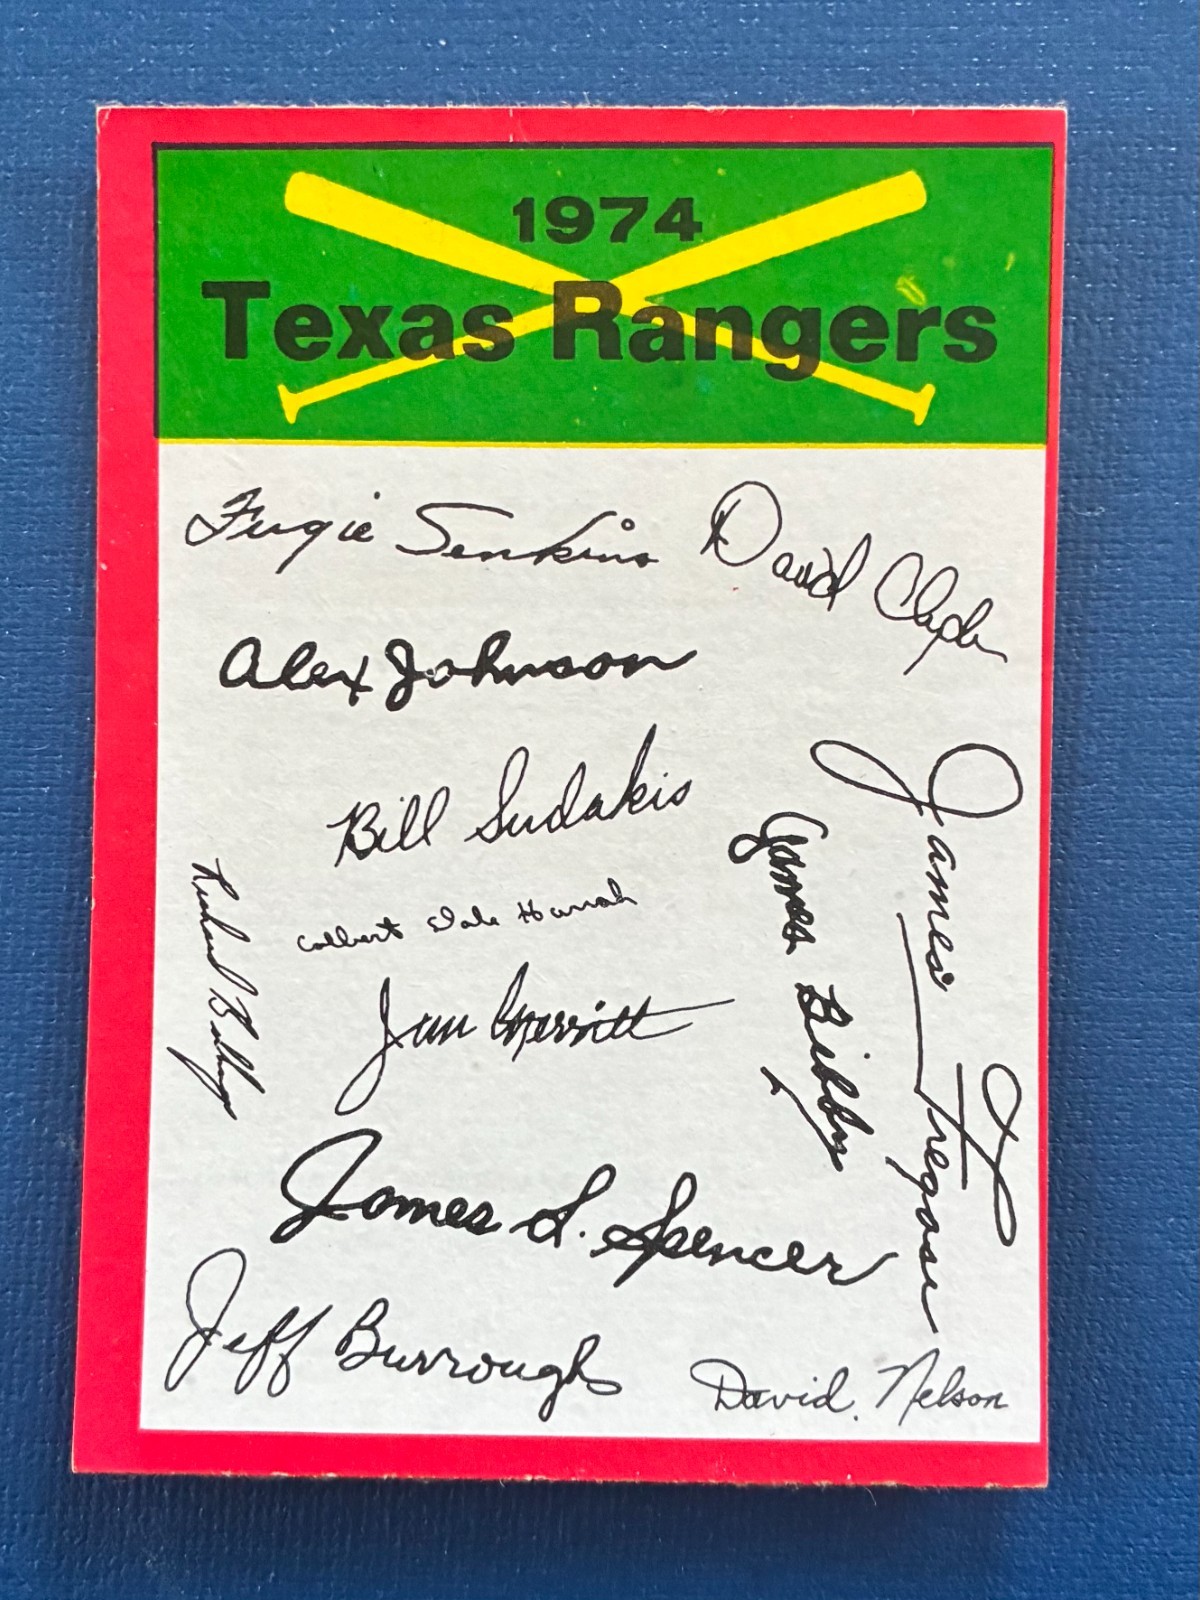 1974
Texas Rangers
Fergie Jenkins
David Clyde
Alex Johnson
Bill Sudakis
James Fregosi
James Bibby
Richard Billings
Colbert Dale Hamrah
Jim Merritt
James L. Spencer
Jeff Burroughs
David. Nelson